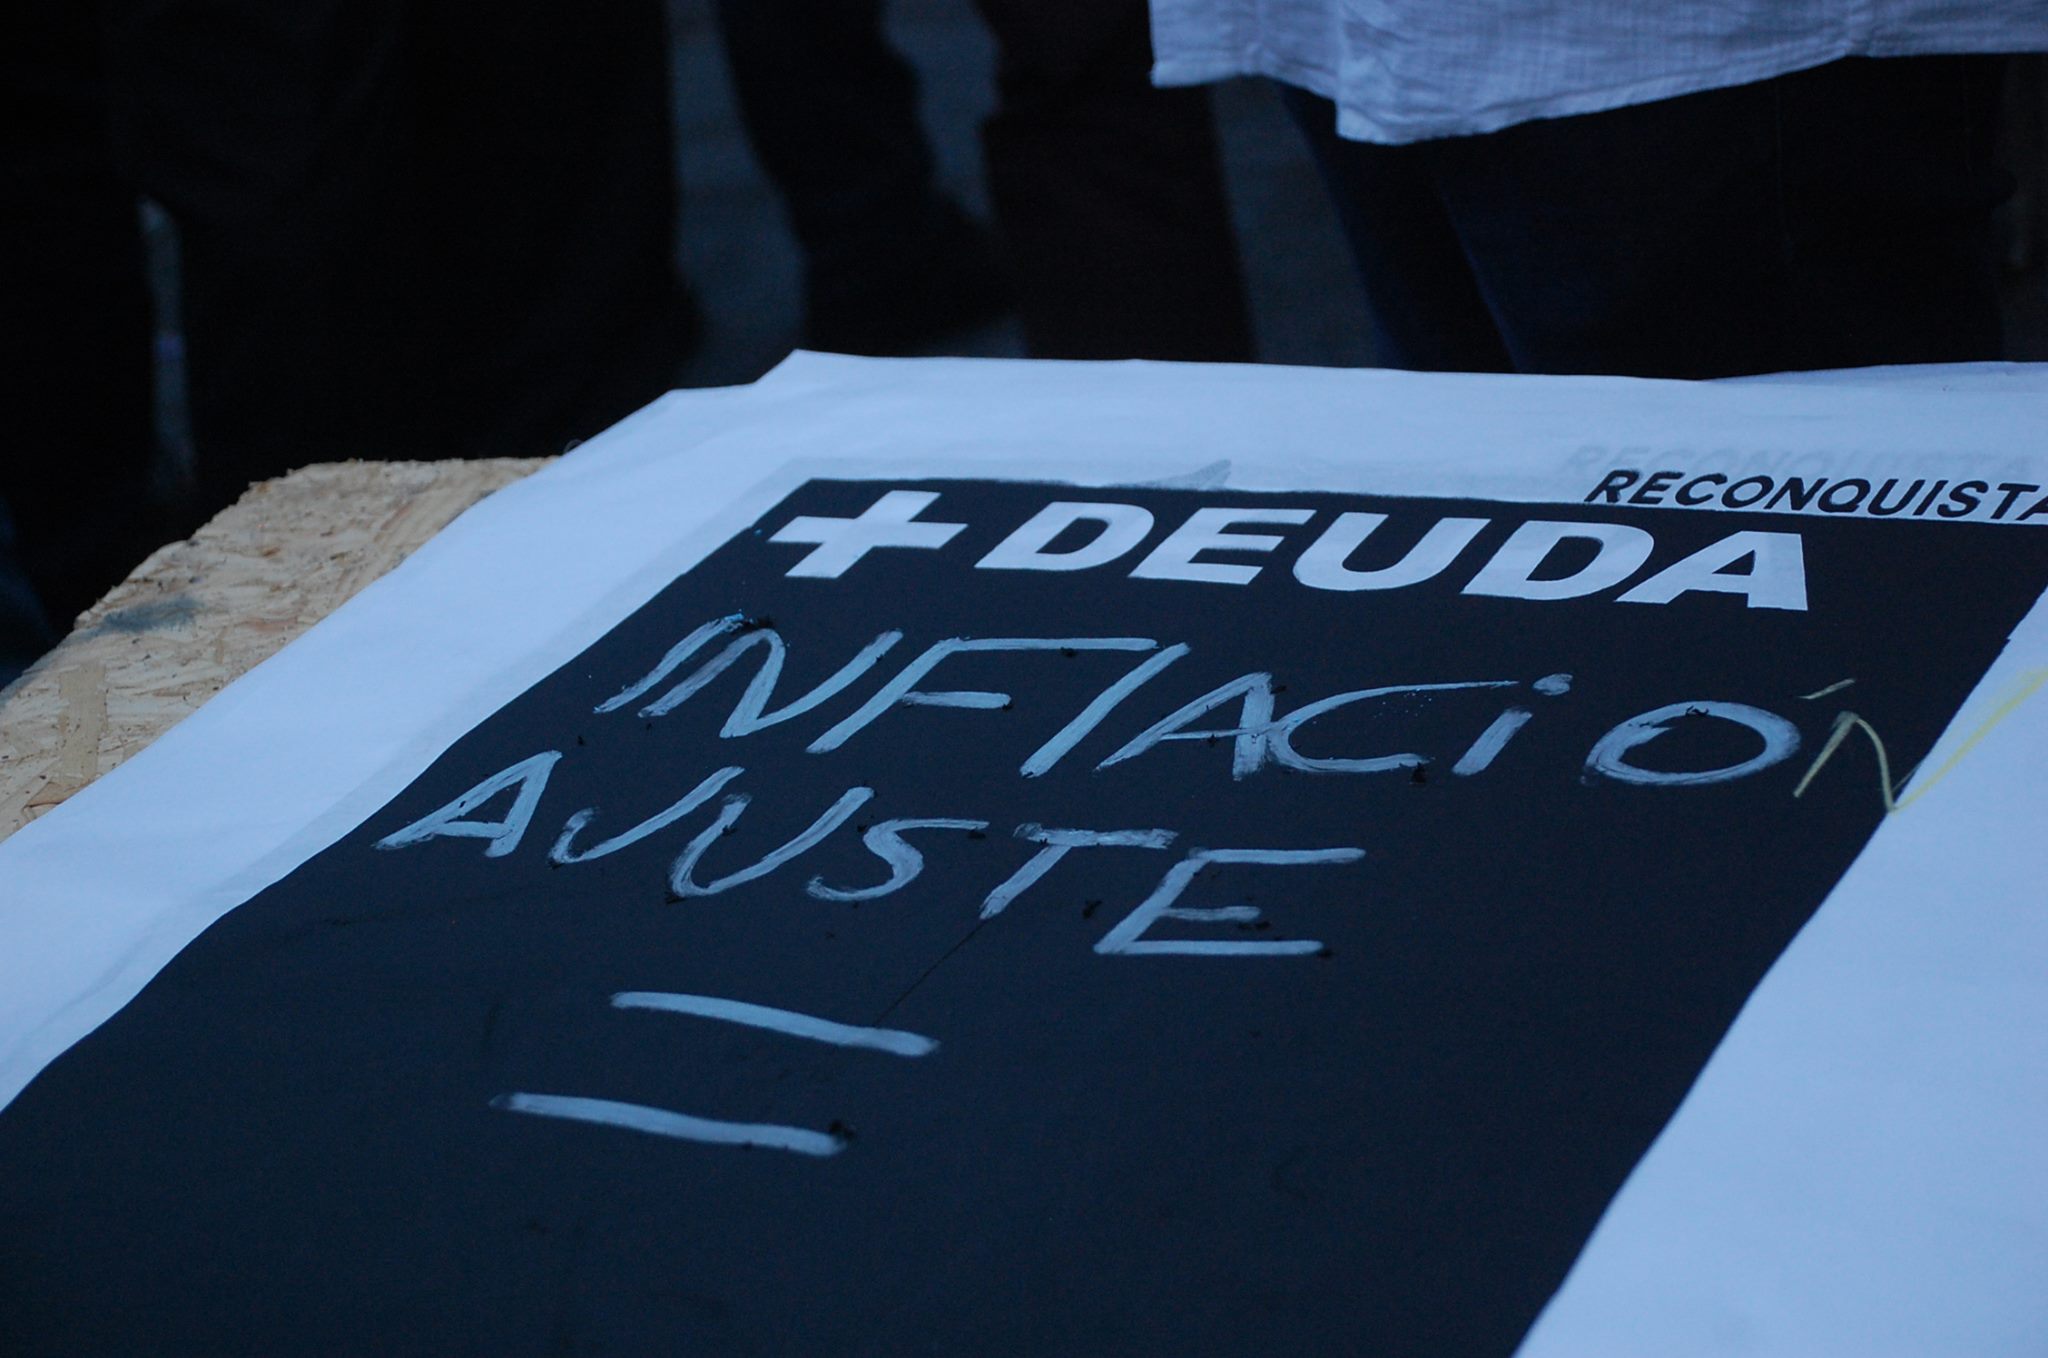 RECONQUISTA
+ DEUDA
INFlACiÓN
AJUSTE
=